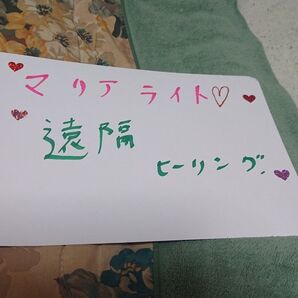 マリア ライト♡
遠隔
ヒーリング.